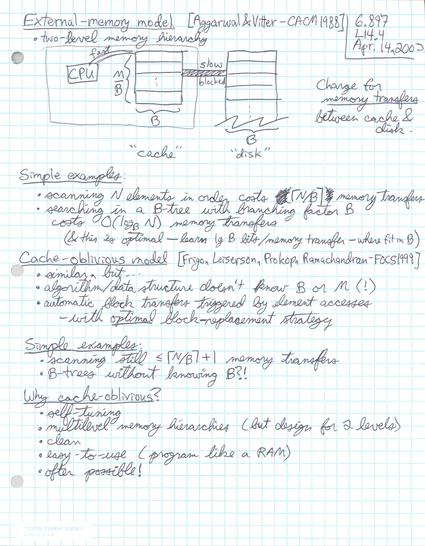 External-memory model [Aggarwal & Vitter - CACM 1988]
6.897
L14.4
Apr. 14, 2003
• two-level memory hierarchy
fast
CPU
M
B
slow
blocked
B
B
"cache"
"disk"
Charge for
memory transfers
between cache &
disk.
Simple examples:
• scanning N elements in order costs ⌈N/B⌉ memory transfers
• searching in a B-tree with branching factor B
costs O(log_B N) memory transfers
(& this is optimal - learn lg B bits/memory transfer - where fit in B)
Cache-oblivious model [Frigo, Leiserson, Prokop, Ramachandran - FOCS 1999]
• similar, but...
• algorithm/data structure doesn't know B or M (!)
• automatic block transfers triggered by element accesses
- with optimal block-replacement strategy
Simple examples:
• scanning still ≤ ⌈N/B⌉ + 1 memory transfers
• B-trees without knowing B?!
Why cache-oblivious?
• self-tuning
• multilevel memory hierarchies (but design for 2 levels)
• clean
• easy-to-use (program like a RAM)
• often possible!